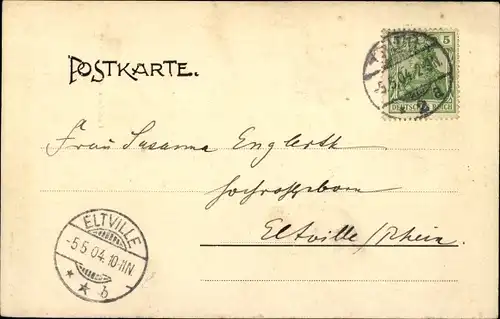 POSTKARTE.
5
DEUTSCHES REICH
5.5.04.
2
Frau Susanna Englerth
Eltville / Rhein
ELTVILLE
-5.5.04.10-11N.
* * b